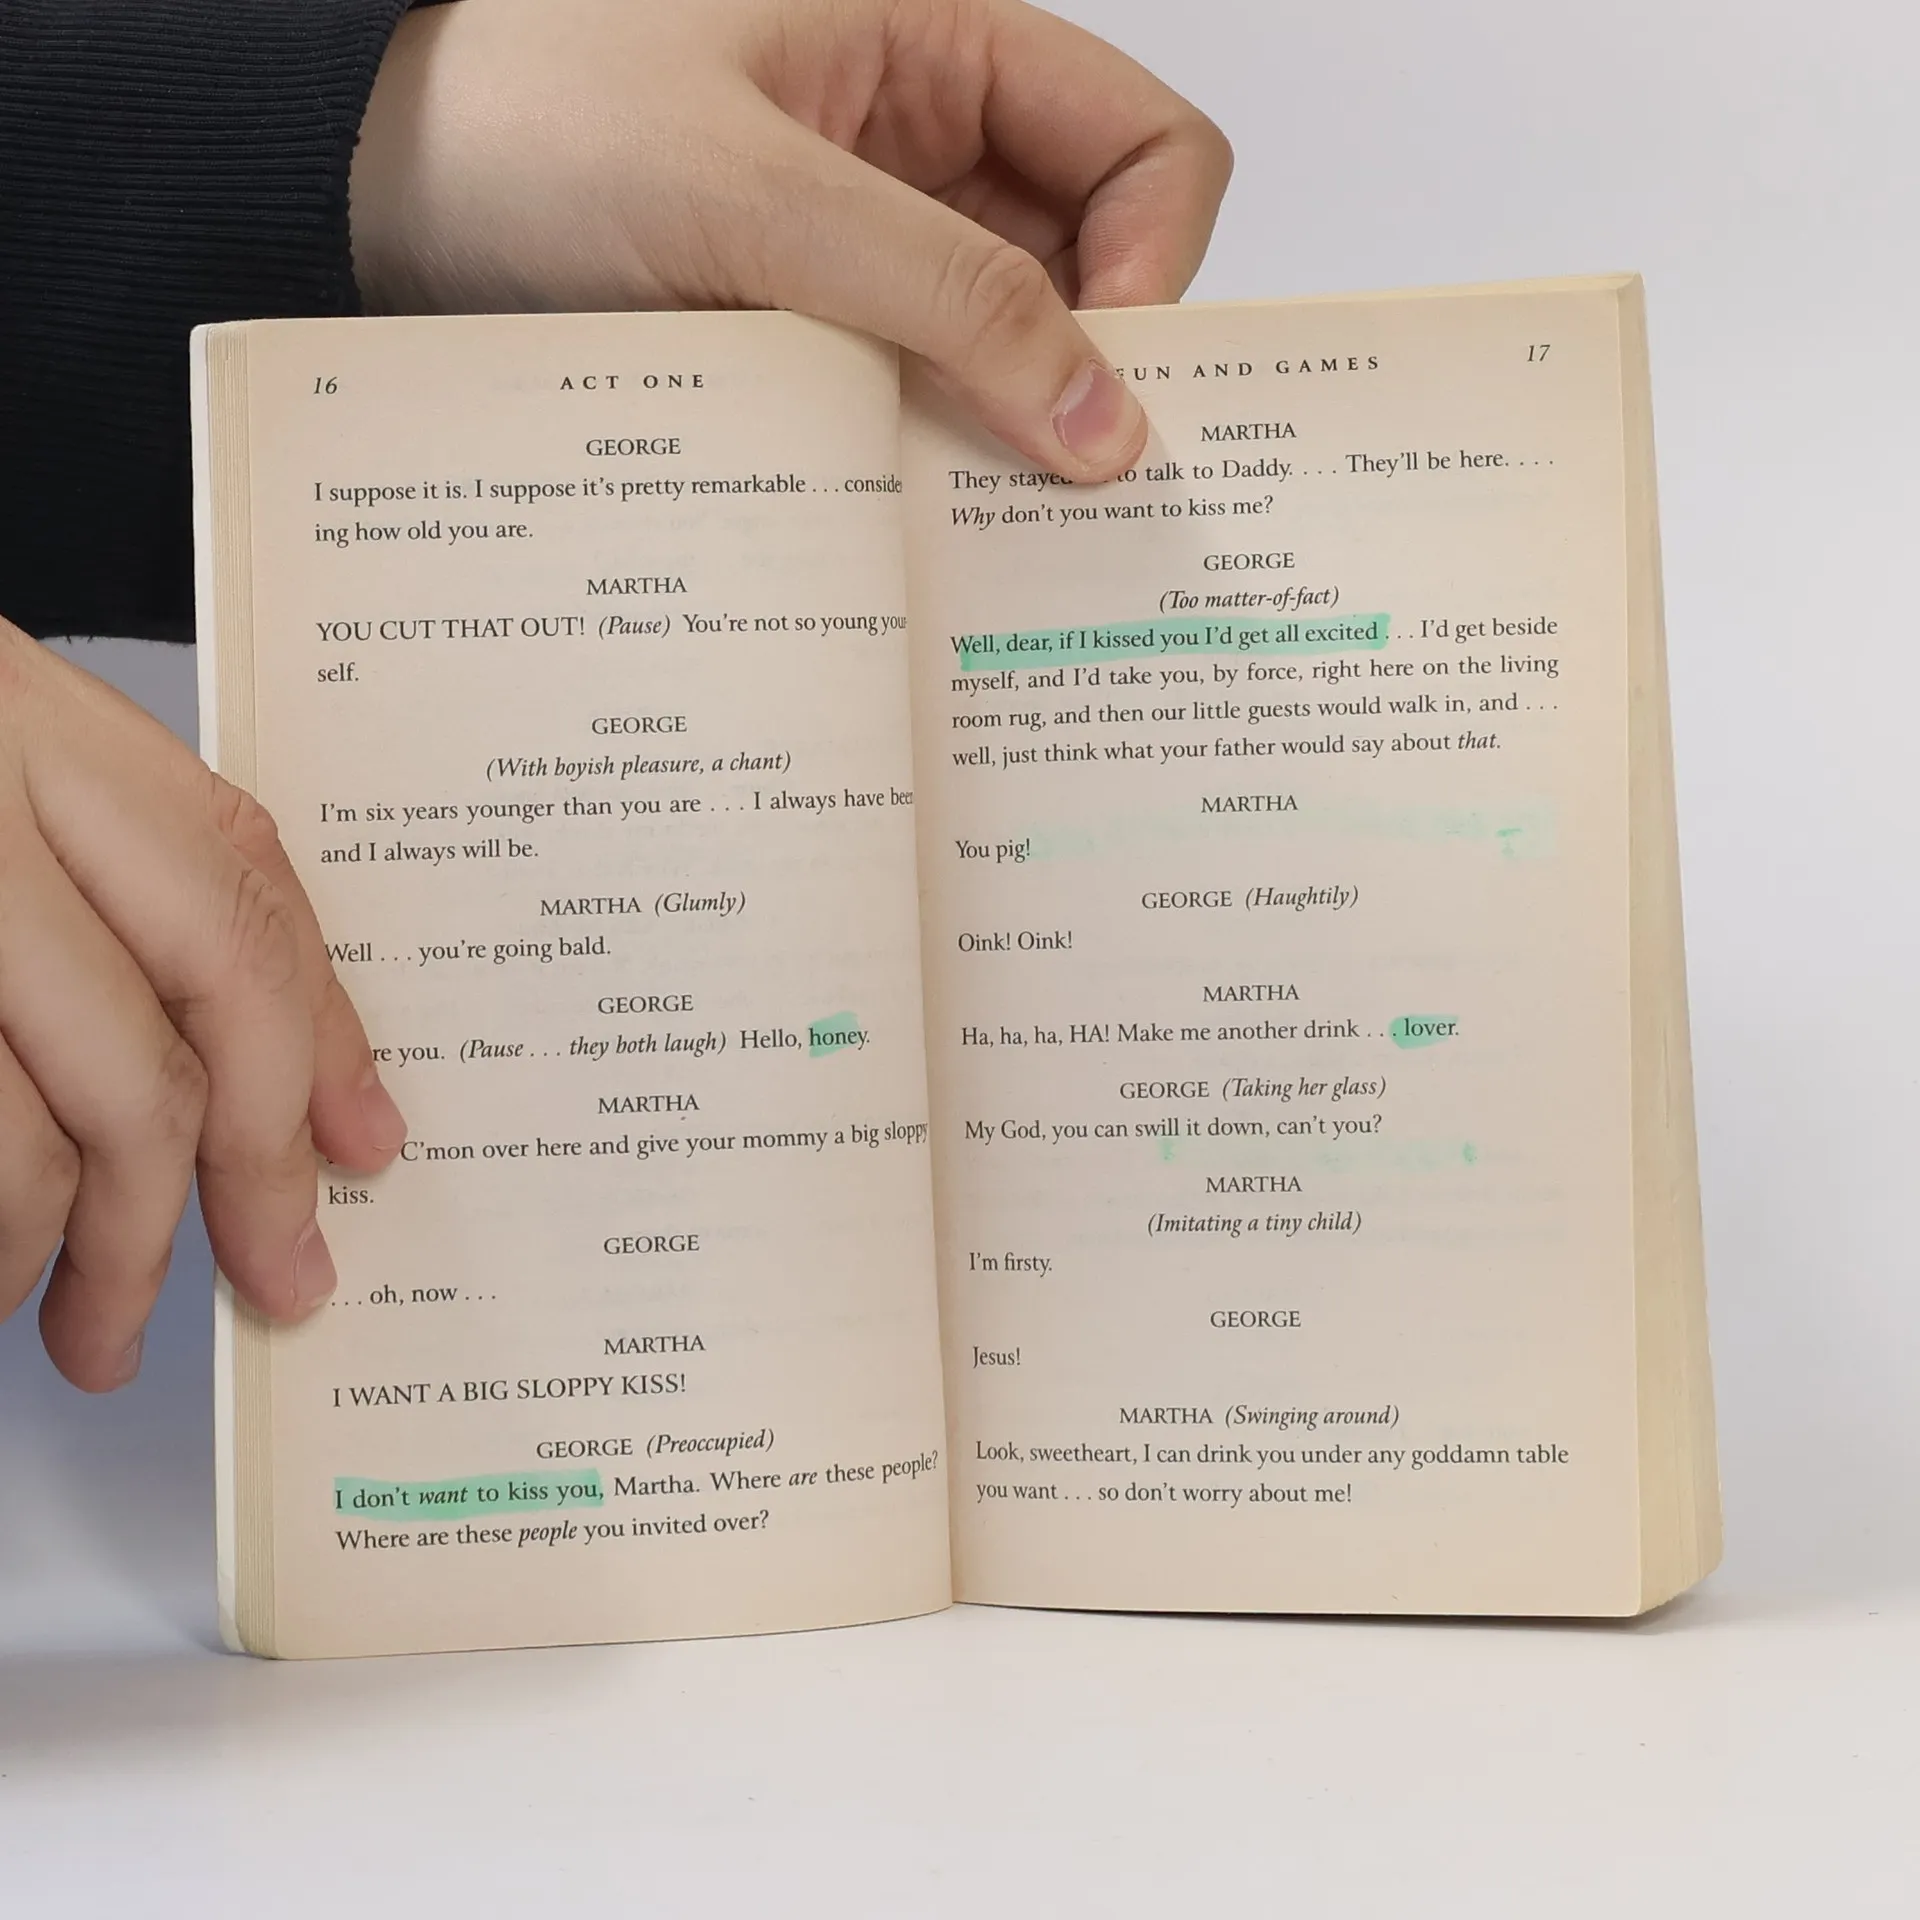 16 ACT ONE
GEORGE
I suppose it is. I suppose it's pretty remarkable . . . conside
ing how old you are.
MARTHA
YOU CUT THAT OUT! (Pause) You're not so young your
self.
GEORGE
(With boyish pleasure, a chant)
I'm six years younger than you are . . . I always have been
and I always will be.
MARTHA (Glumly)
Well . . . you're going bald.
GEORGE
re you. (Pause . . . they both laugh) Hello, honey.
MARTHA
C'mon over here and give your mommy a big sloppy
kiss.
GEORGE
. . . oh, now . . .
MARTHA
I WANT A BIG SLOPPY KISS!
GEORGE (Preoccupied)
I don't want to kiss you, Martha. Where are these people?
Where are these people you invited over?
UN AND GAMES 17
MARTHA
They to talk to Daddy. . . . They'll be here. . . .
Why don't you want to kiss me?
GEORGE
(Too matter-of-fact)
Well, dear, if I kissed you I'd get all excited . . . I'd get beside
myself, and I'd take you, by force, right here on the living
room rug, and then our little guests would walk in, and . . .
well, just think what your father would say about that.
MARTHA
You pig!
GEORGE (Haughtily)
Oink! Oink!
MARTHA
Ha, ha, ha, HA! Make me another drink . . . lover.
GEORGE (Taking her glass)
My God, you can swill it down, can't you?
MARTHA
(Imitating a tiny child)
I'm firsty.
GEORGE
Jesus!
MARTHA (Swinging around)
Look, sweetheart, I can drink you under any goddamn table
you want . . . so don't worry about me!